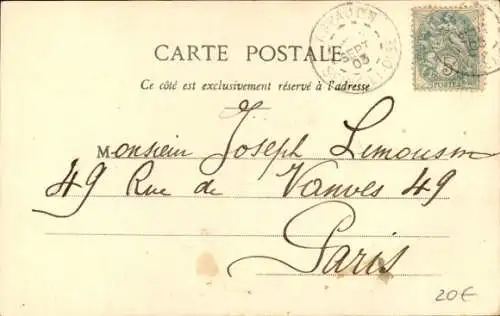 CARTE POSTALE
Ce côté est exclusivement réservé à l'adresse
SEPT
03
5
POSTES
Monsieur Joseph Limousin
49 Rue de Vanves 49
Paris
20€